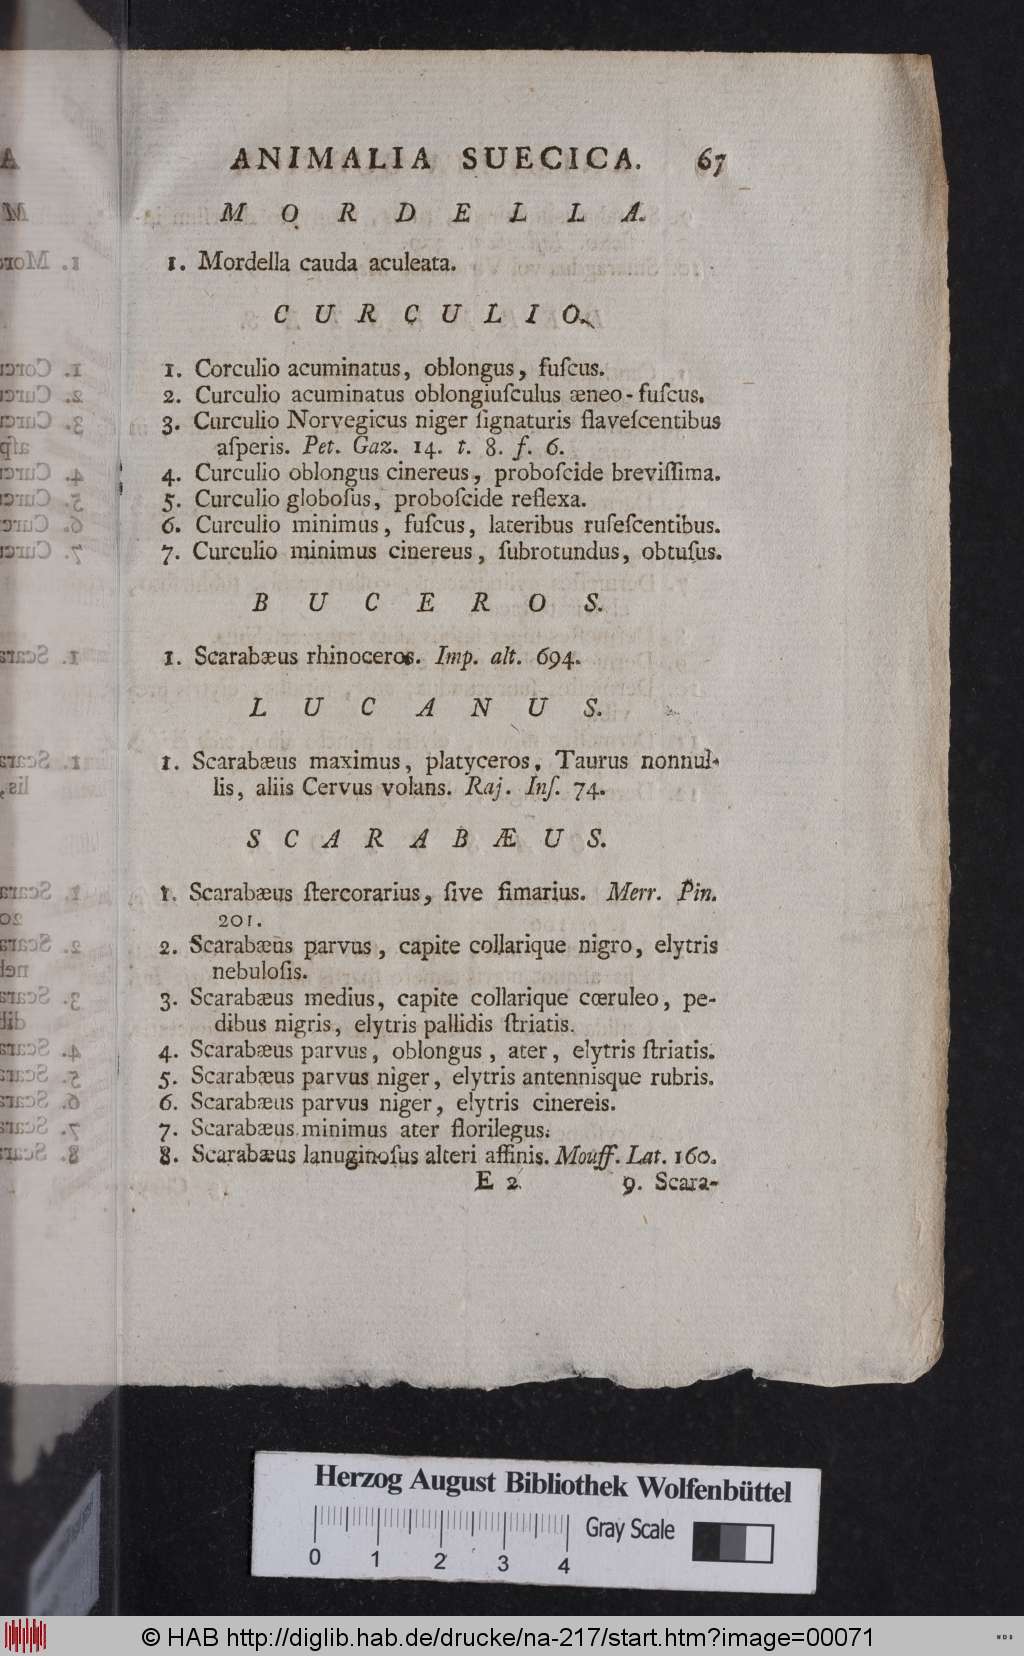 ANIMALIA SUECICA. 67
M O R D E L L A.
1. Mordella cauda aculeata.
C U R C U L I O.
1. Corculio acuminatus, oblongus, fuſcus.
2. Curculio acuminatus oblongiuſculus æneo-fuſcus.
3. Curculio Norvegicus niger ſignaturis flaveſcentibus
aſperis. Pet. Gaz. 14. t. 8. f. 6.
4. Curculio oblongus cinereus, proboſcide breviſſima.
5. Curculio globoſus, proboſcide reflexa.
6. Curculio minimus, fuſcus, lateribus rufeſcentibus.
7. Curculio minimus cinereus, ſubrotundus, obtuſus.
B U C E R O S.
1. Scarabæus rhinoceros. Imp. alt. 694.
L U C A N U S.
1. Scarabæus maximus, platyceros, Taurus nonnul-
lis, aliis Cervus volans. Raj. Inſ. 74.
S C A R A B Æ U S.
1. Scarabæus ſtercorarius, ſive fimarius. Merr. Pin.
201.
2. Scarabæus parvus, capite collarique nigro, elytris
nebuloſis.
3. Scarabæus medius, capite collarique cœruleo, pe-
dibus nigris, elytris pallidis ſtriatis.
4. Scarabæus parvus, oblongus, ater, elytris ſtriatis.
5. Scarabæus parvus niger, elytris antennisque rubris.
6. Scarabæus parvus niger, elytris cinereis.
7. Scarabæus minimus ater florilegus.
8. Scarabæus lanuginoſus alteri affinis. Mouff. Lat. 160.
E 2 9. Scara-
Herzog August Bibliothek Wolfenbüttel
Gray Scale
0 1 2 3 4
© HAB http://diglib.hab.de/drucke/na-217/start.htm?image=00071